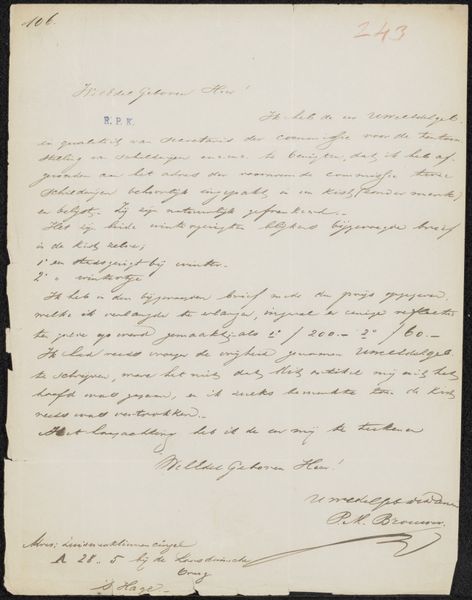 106.
243
WelEdel Geboren Heer!
R. P. K.
Ik heb de eer UWEdelgeb
in qualiteit van secretaris der commissie voor de tentoon
stelling van schilderijen enz. te berigten, dat ik heb af
gezonden aan het adres der voornoemde commissie twee
schilderijen behoorlijk ingepakt in een kist (zonder merk)
en belijst. Zij zijn natuurlijk gefrankeerd.
Het zijn beide wintergezigten blijkens bijgevoegde brief
in de kist zelve;
1º een stadsgezigt bij winter
2º " wintertje
Ik heb in den bijgevoegden brief reeds den prijs opgegeven
welke ik verlangde te erlangen, ingeval er eenige
te geven op werd gemaakt; als 1º f 200.- 2º f 60.-
Ik had reeds vroeger de vrijheid genomen UWEdelgeb.
te schrijven, ware het niet dat
hoofd was gegaan, en ik zulks bemerkte toen de kist
reeds was vertrokken.
Met hoogachting heb ik de eer mij te teekenen
WelEdel Geboren Heer!
UWEdelgeb dd Dienaar
P. M. Brouwer.
Adres:
A 28.5 bij de Loosduinsche
brug
's Hage.